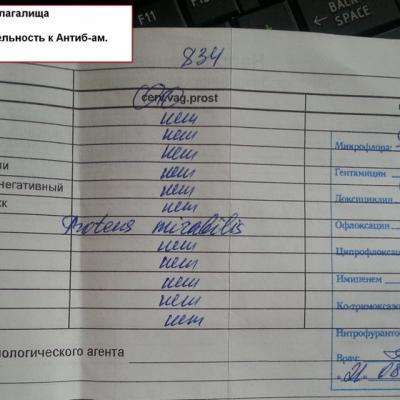 лагалища
ельность к Антиб-ам.
F11
F12
BACK
SPACE
834
cerv,vag.prost
нет
нет
Микрофлора:
нет
ии
нет
Гентамицин
негативный
нет
Доксициклин
к
нет
Proteus mirabilis
Офлоксацин
нет
нет
Ципрофлокса
нет
Имипенем
нет
Ко-тримоксазо
нет
Нитрофуранто
иологического агента
Врач:
21. 08